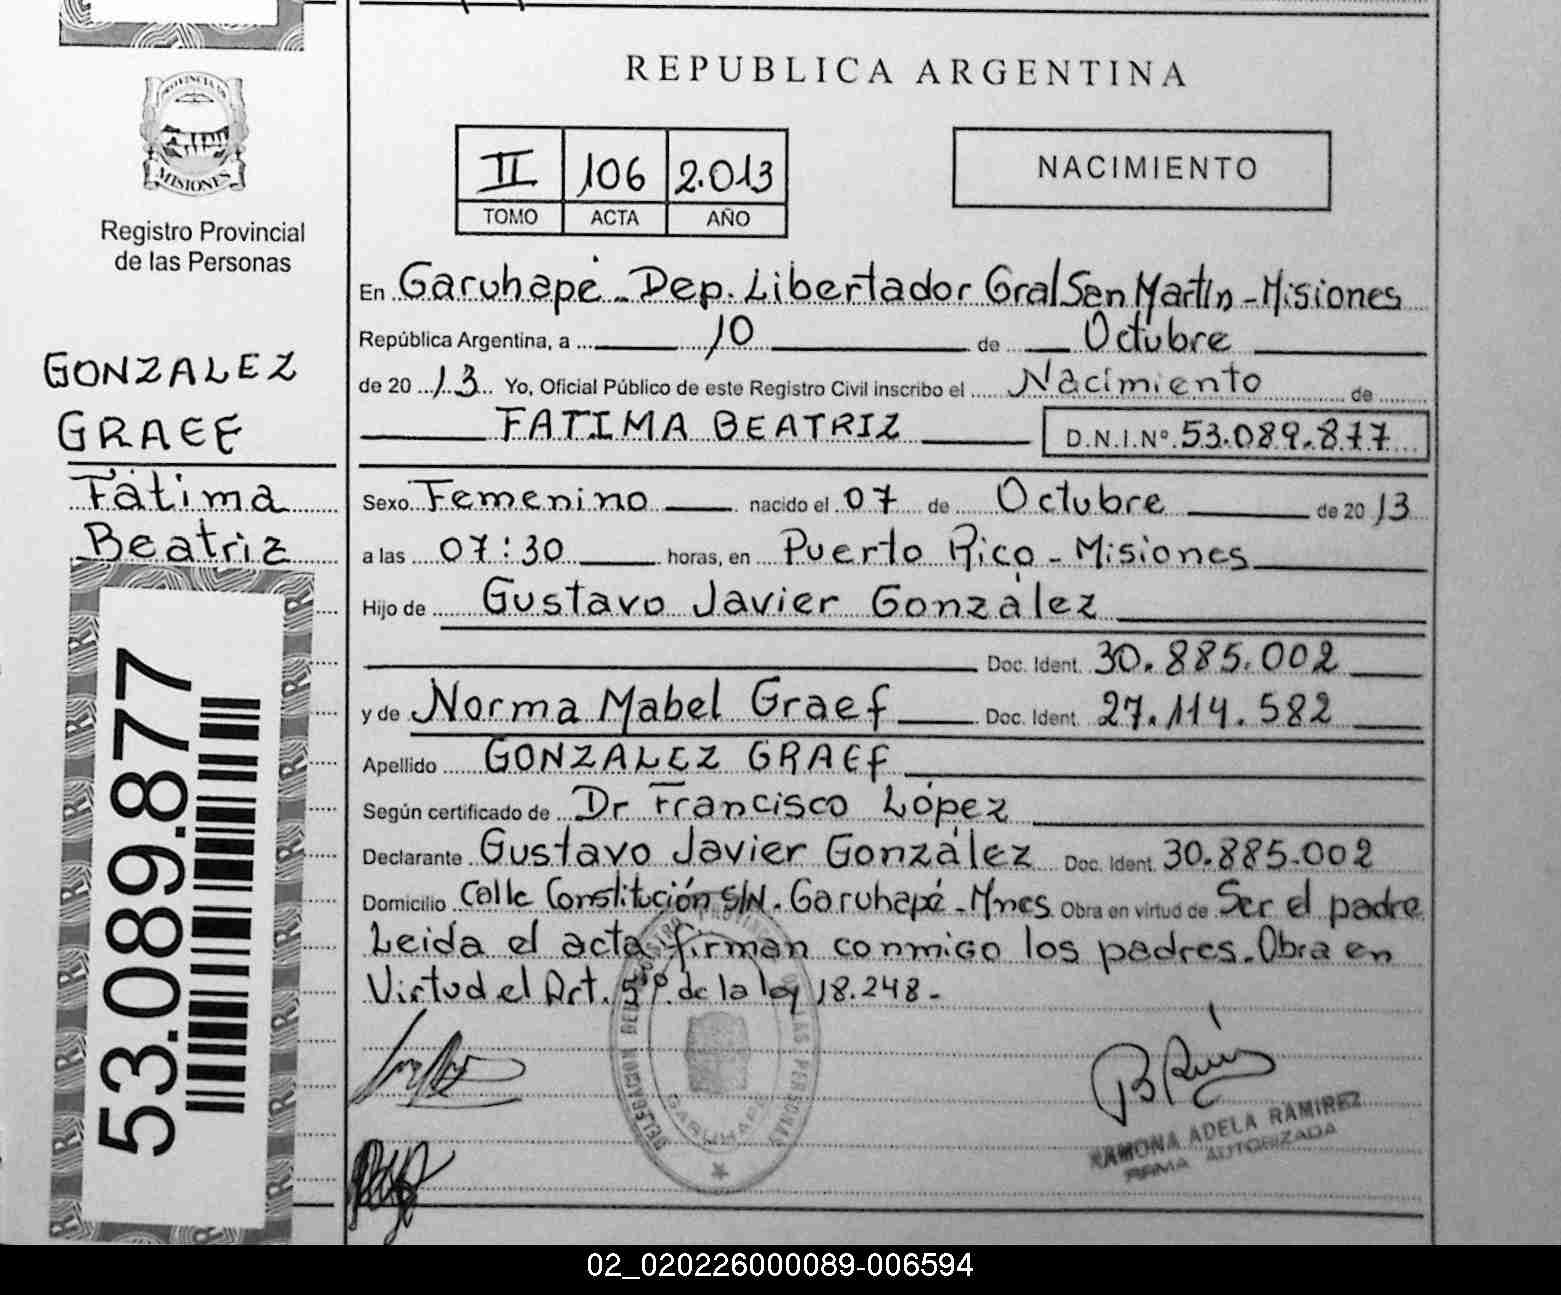 PROVINCIA DE
MISIONES
Registro Provincial
de las Personas
GONZALEZ
GRAEF
Fátima
Beatriz
53.089.877
REPUBLICA ARGENTINA
II 106 2.013
TOMO ACTA AÑO
NACIMIENTO
En Garuhapé - Dep. Libertador Gral San Martín - Misiones
República Argentina, a 10 de Octubre
de 20 13 Yo, Oficial Público de este Registro Civil inscribo el Nacimiento de
FATIMA BEATRIZ D.N.I.Nº 53.089.877
Sexo Femenino nacido el 07 de Octubre de 20 13
a las 07:30 horas, en Puerto Rico - Misiones
Hijo de Gustavo Javier González
Doc. Ident. 30.885.002
y de Norma Mabel Graef Doc. Ident. 27.114.582
Apellido GONZALEZ GRAEF
Según certificado de Dr Francisco López
Declarante Gustavo Javier González Doc. Ident. 30.885.002
Domicilio Calle Constitución S/N. Garuhapé - Mnes. Obra en virtud de Ser el padre
Leida el acta firman conmigo los padres. Obra en
Virtud el Art. 5º de la ley 18.248 -
DELEGACION DEL REGISTRO PROVINCIAL DE LAS PERSONAS
GARUHAPE
RAMONA ADELA RAMIREZ
FIRMA AUTORIZADA
02_020226000089-006594